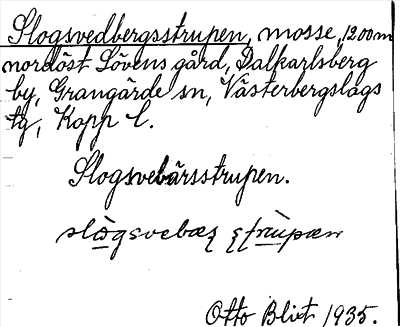 Slogsvedbergsstrupen, mosse, 1200m
nordöst Lövens gård, Dalkarlsberg
by, Grangärde sn, Västerbergslags
tg, Kopp. l.
Slogsvebärsstrupen.
Otto Blixt 1935.